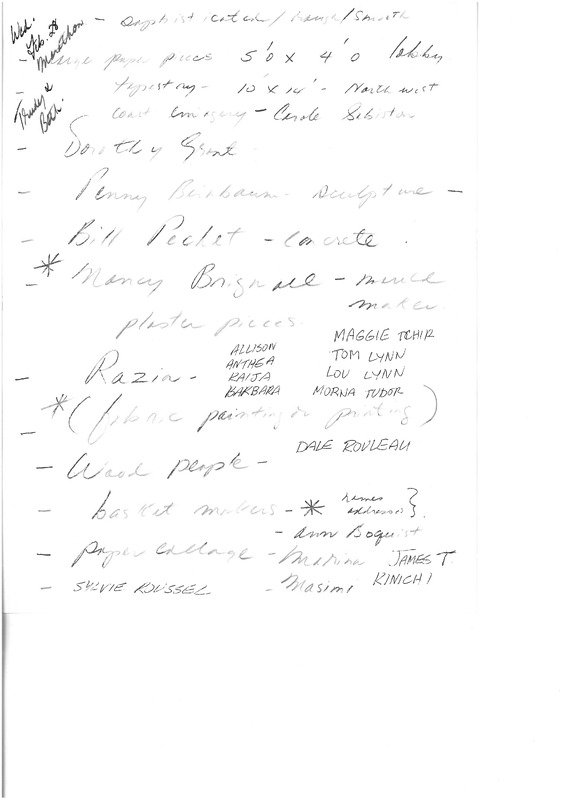 Wed.
Feb. 28
Marathon
Trudy &
Beth.
- sophisticated / Rough / Smooth
- large paper pieces 5'0 x 4'0 lobby
- tapestry - 10' x 14' - North west
coast - Carole Sabiston
- Dorothy Grant
- Penny Birnbaum - sculpture -
- Bill Pechet - Concrete.
- * Nancy - mixed
plaster pieces.
- Razia - ALLISON
ANTHEA
KAIJA
BARBARA
MAGGIE TCHIR
TOM LYNN
LOU LYNN
MORNA TUDOR
- * (fabric painting or printing)
DALE ROULEAU
- Wood people -
- basket makers - * names
addresses }.
- Ann Boquist
- paper collage - Marina JAMES T.
- SYLVIE ROUSSEL - Masimi KINICHI